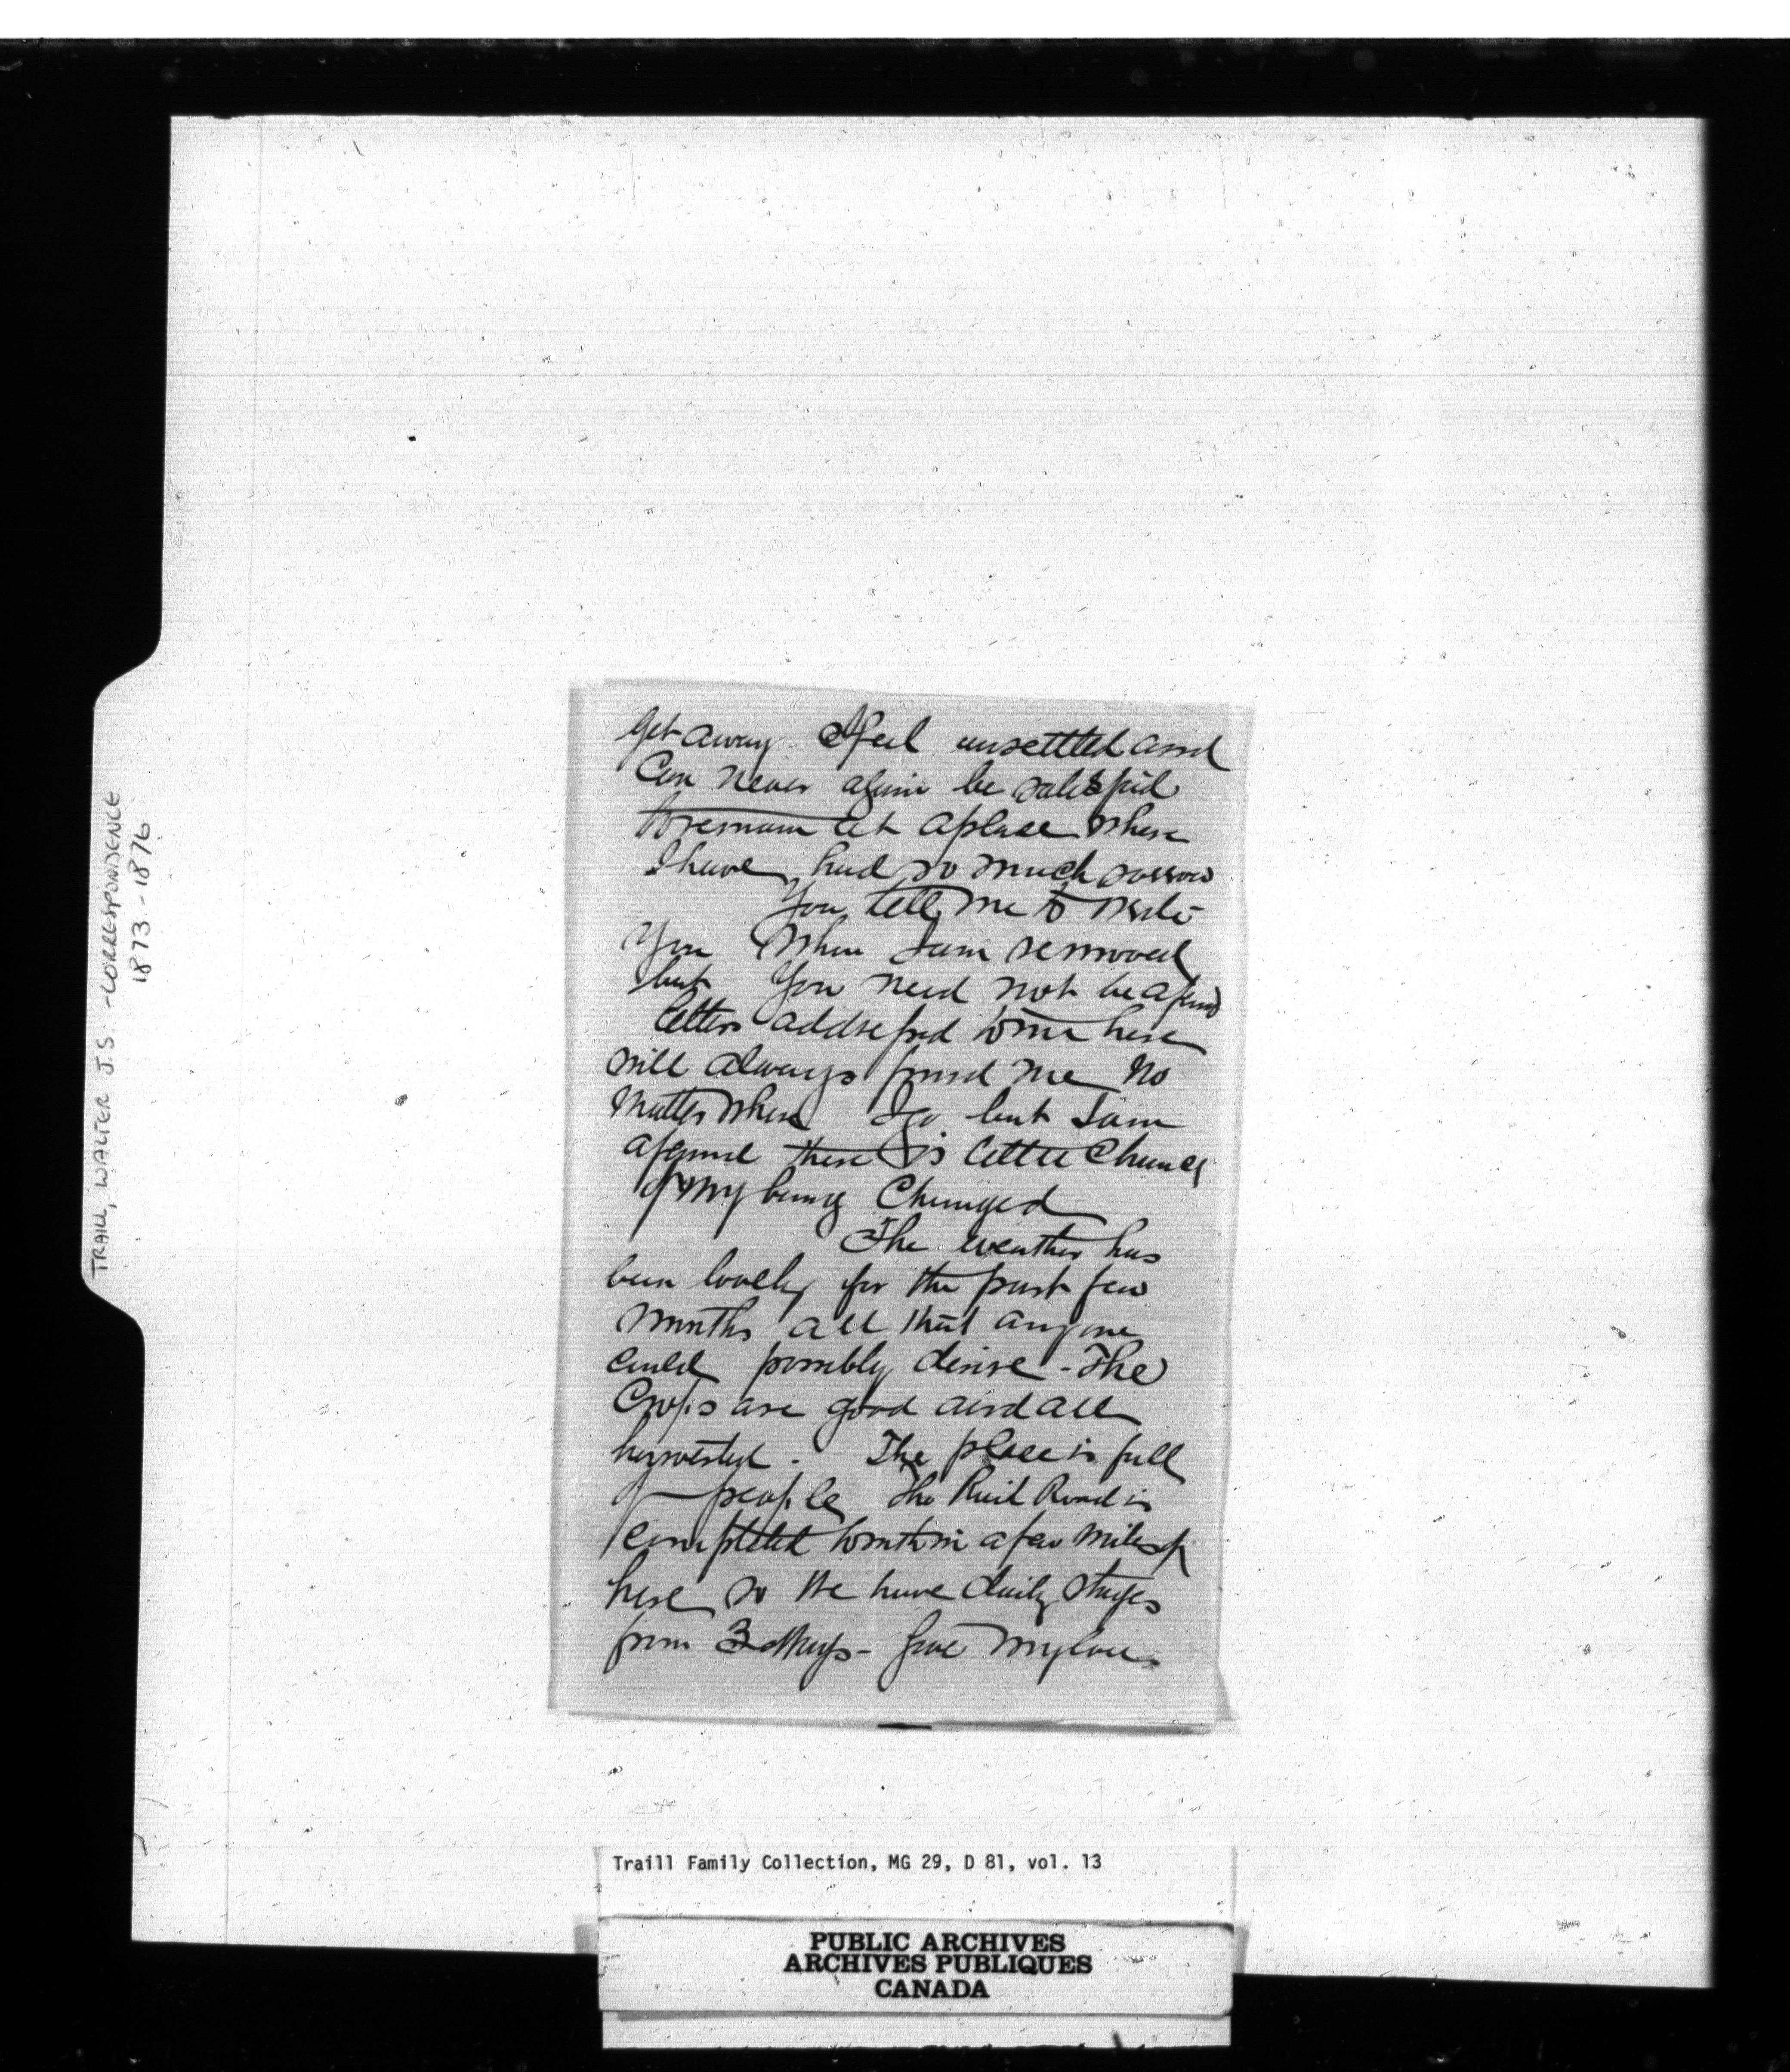 get away I feel unsettled and
Can never again be satisfied
to remain at a place where
I have had so much sorrow
You tell me to write
you when I am removed
but you need not be afraid
letters addressed to me here
will always find me no
matter where I go but I am
afraid there is little chance
of my being changed
The weather has
been lovely for the past few
months all that anyone
could possibly desire - The
Crops are good and all
harvested. The place is full
of people the Rail Road is
completed to within a few miles of
here so we have daily stages
from 3 - Give my love
TRAILL, WALTER J.S. - CORRESPONDENCE
1873 - 1876
Traill Family Collection, MG 29, D 81, vol. 13
PUBLIC ARCHIVES
ARCHIVES PUBLIQUES
CANADA